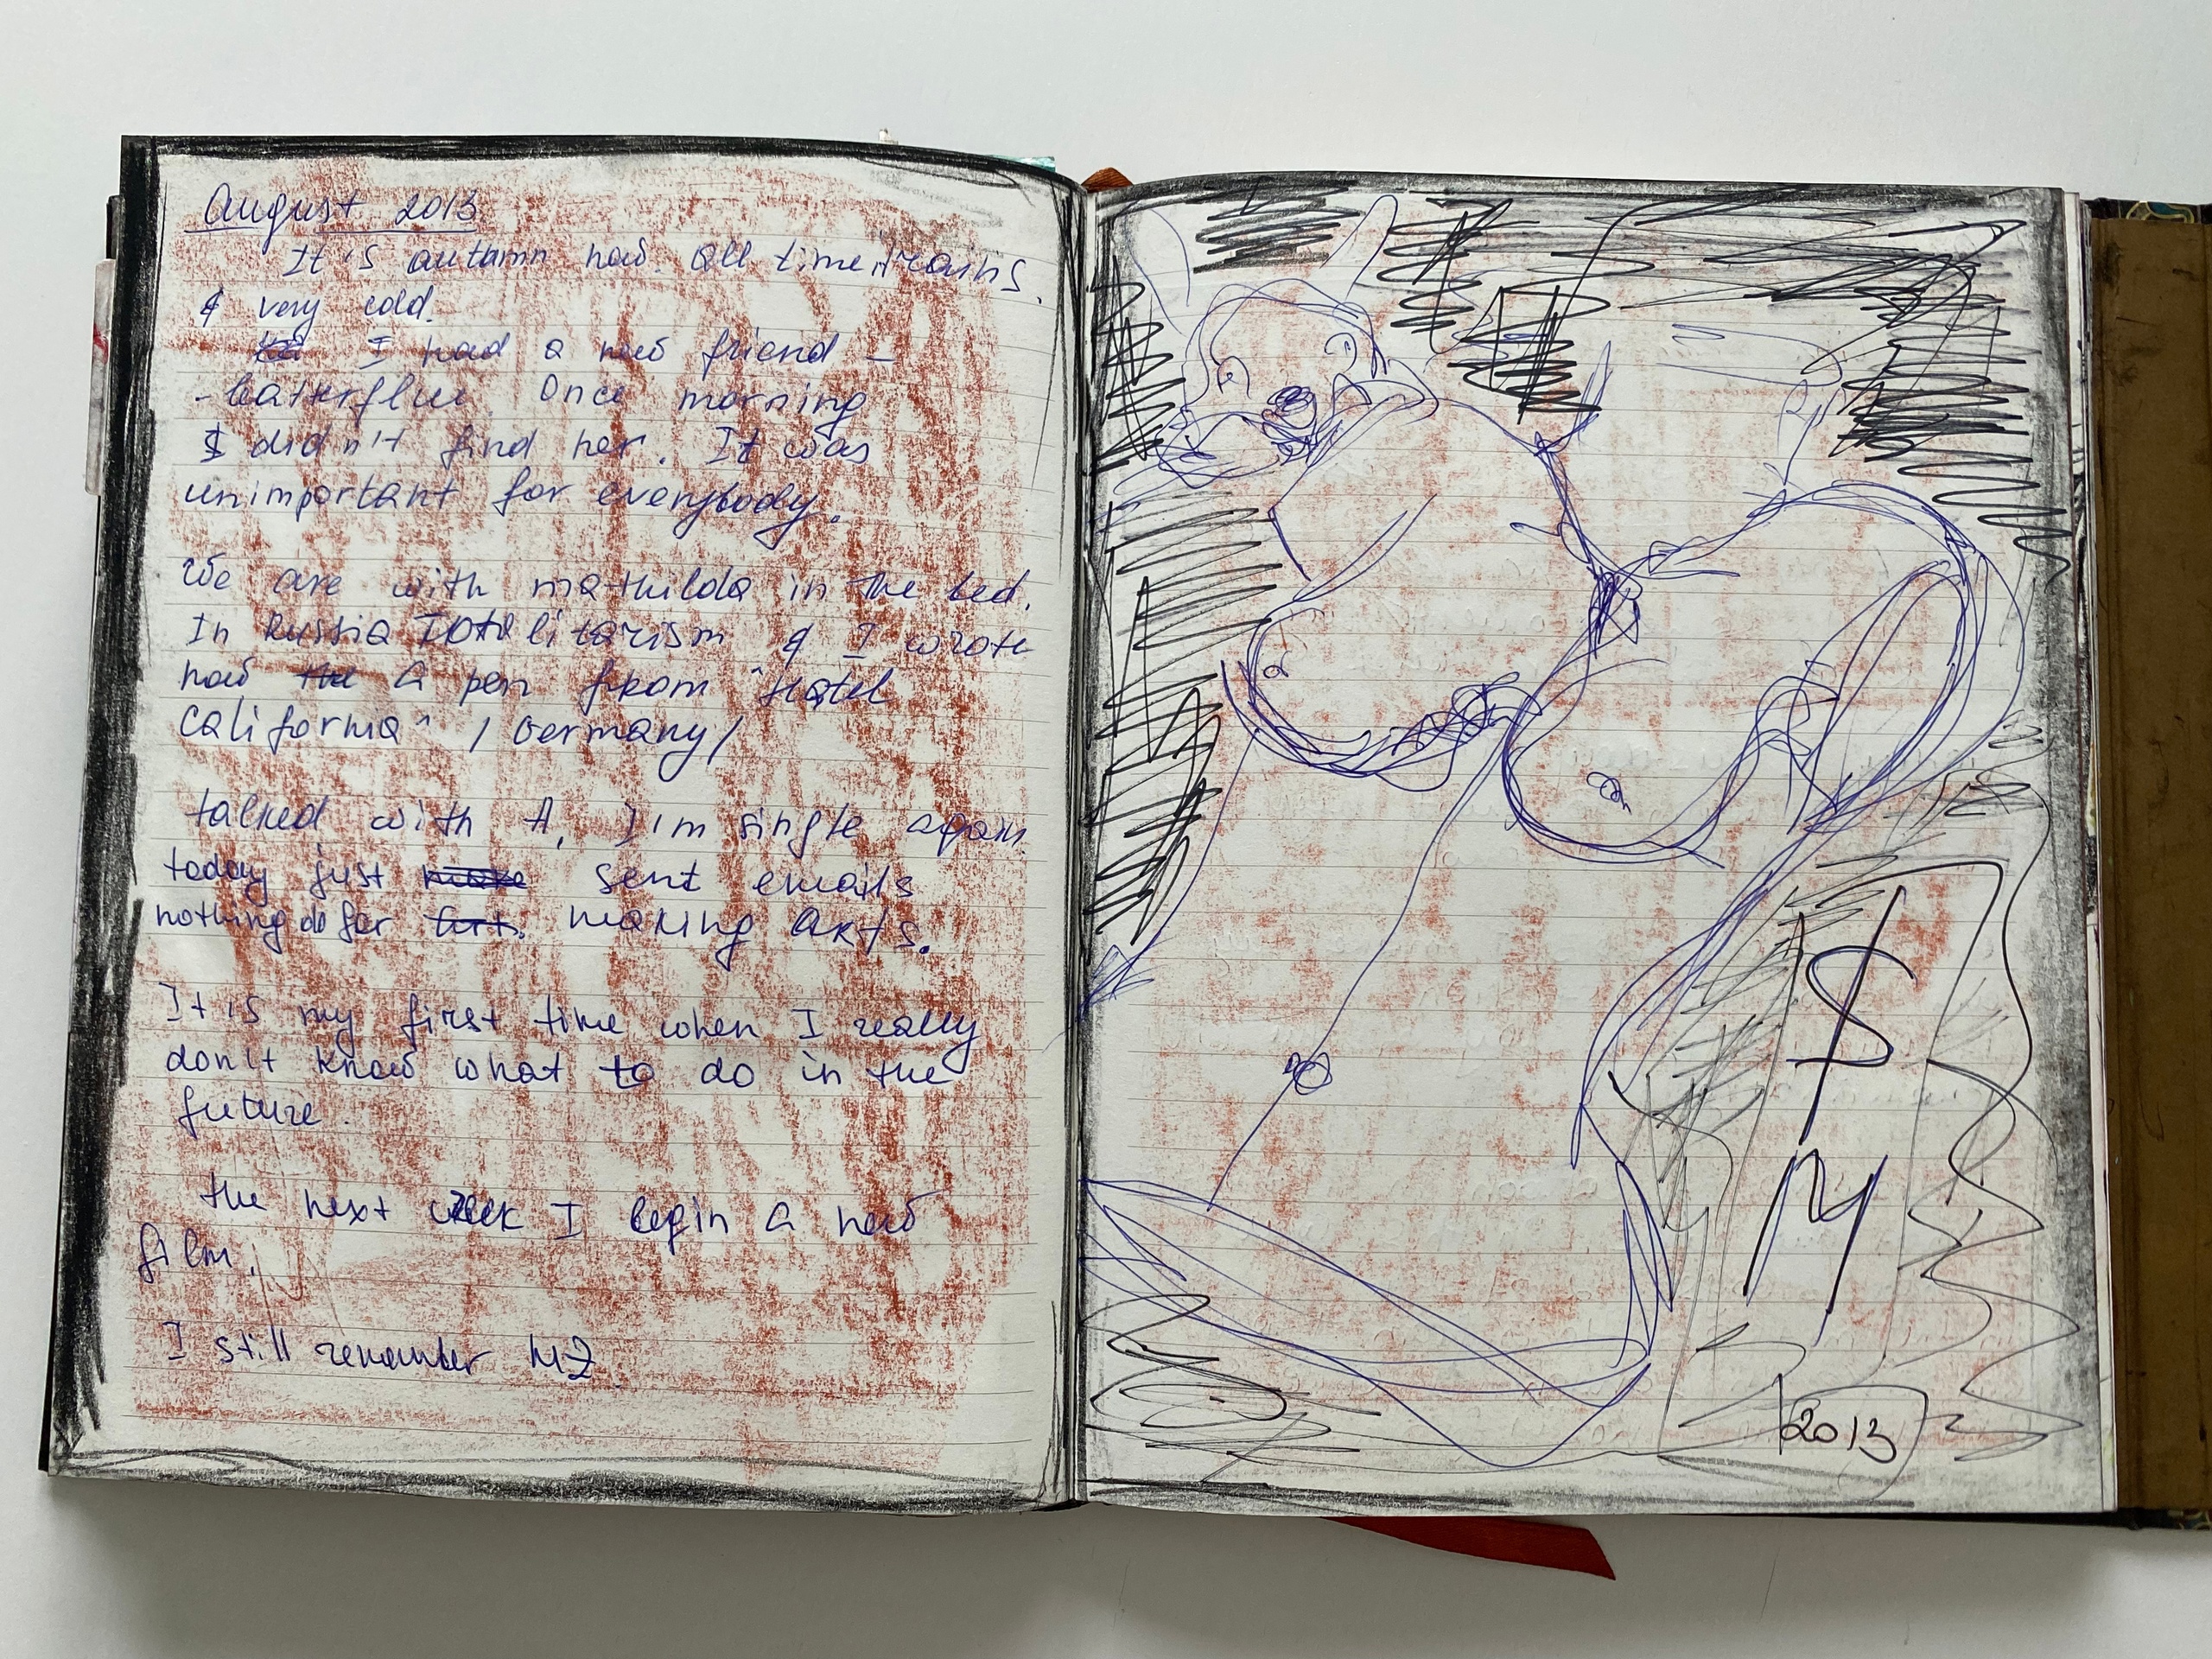 August 2013
It is autumn now. All time it rains.
& very cold.
I had a new friend -
- batterflue. Once morning
I didn't find her. It was
unimportant for everybody.
We are with mathilda in the bed.
In Russia Totalitarism & I wrote
now the a pen from "Hotel
California" / Germany /
talked with A. I'm single again.
today just sent emails
nothing do for art. making arts.
It is my first time when I really
don't know what to do in the
future.
the next week I begin a new
film.
I still remember MZ.
$
M
2013